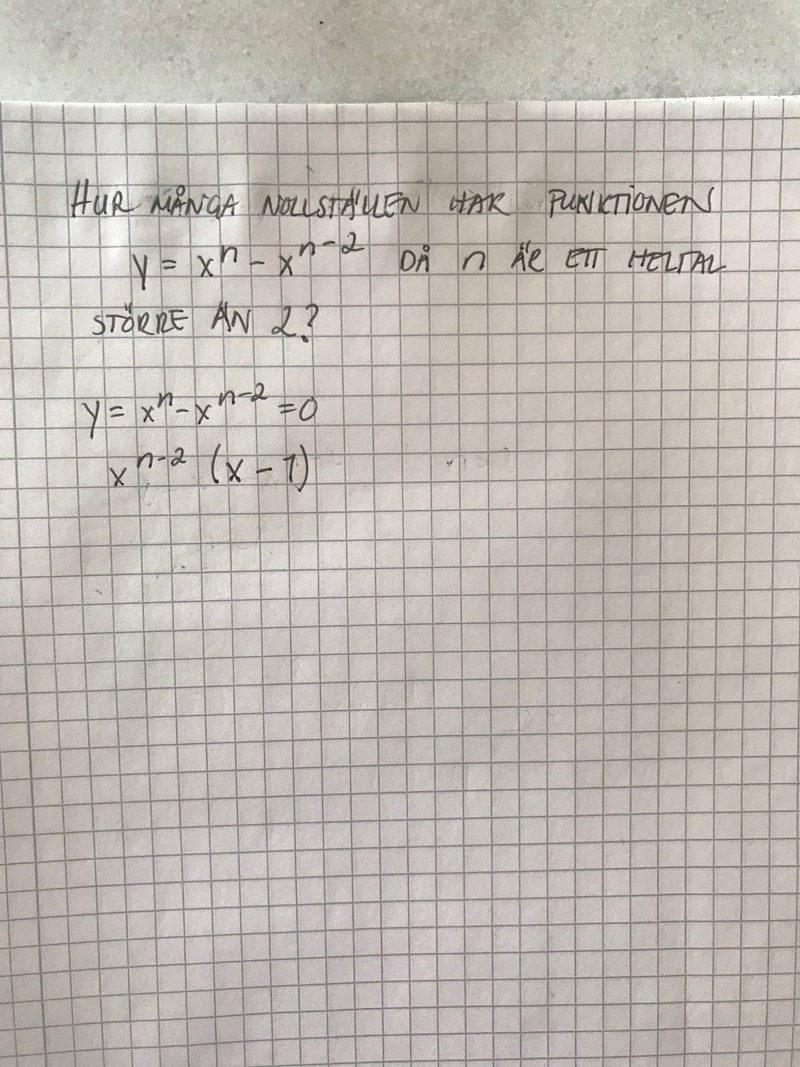 HUR MÅNGA NOLLSTÄLLEN HAR FUNKTIONEN
y = xⁿ - xⁿ⁻² DÅ n ÄR ETT HELTAL
STÖRRE ÄN 2?
y = xⁿ - xⁿ⁻² = 0
xⁿ⁻² (x - 1)